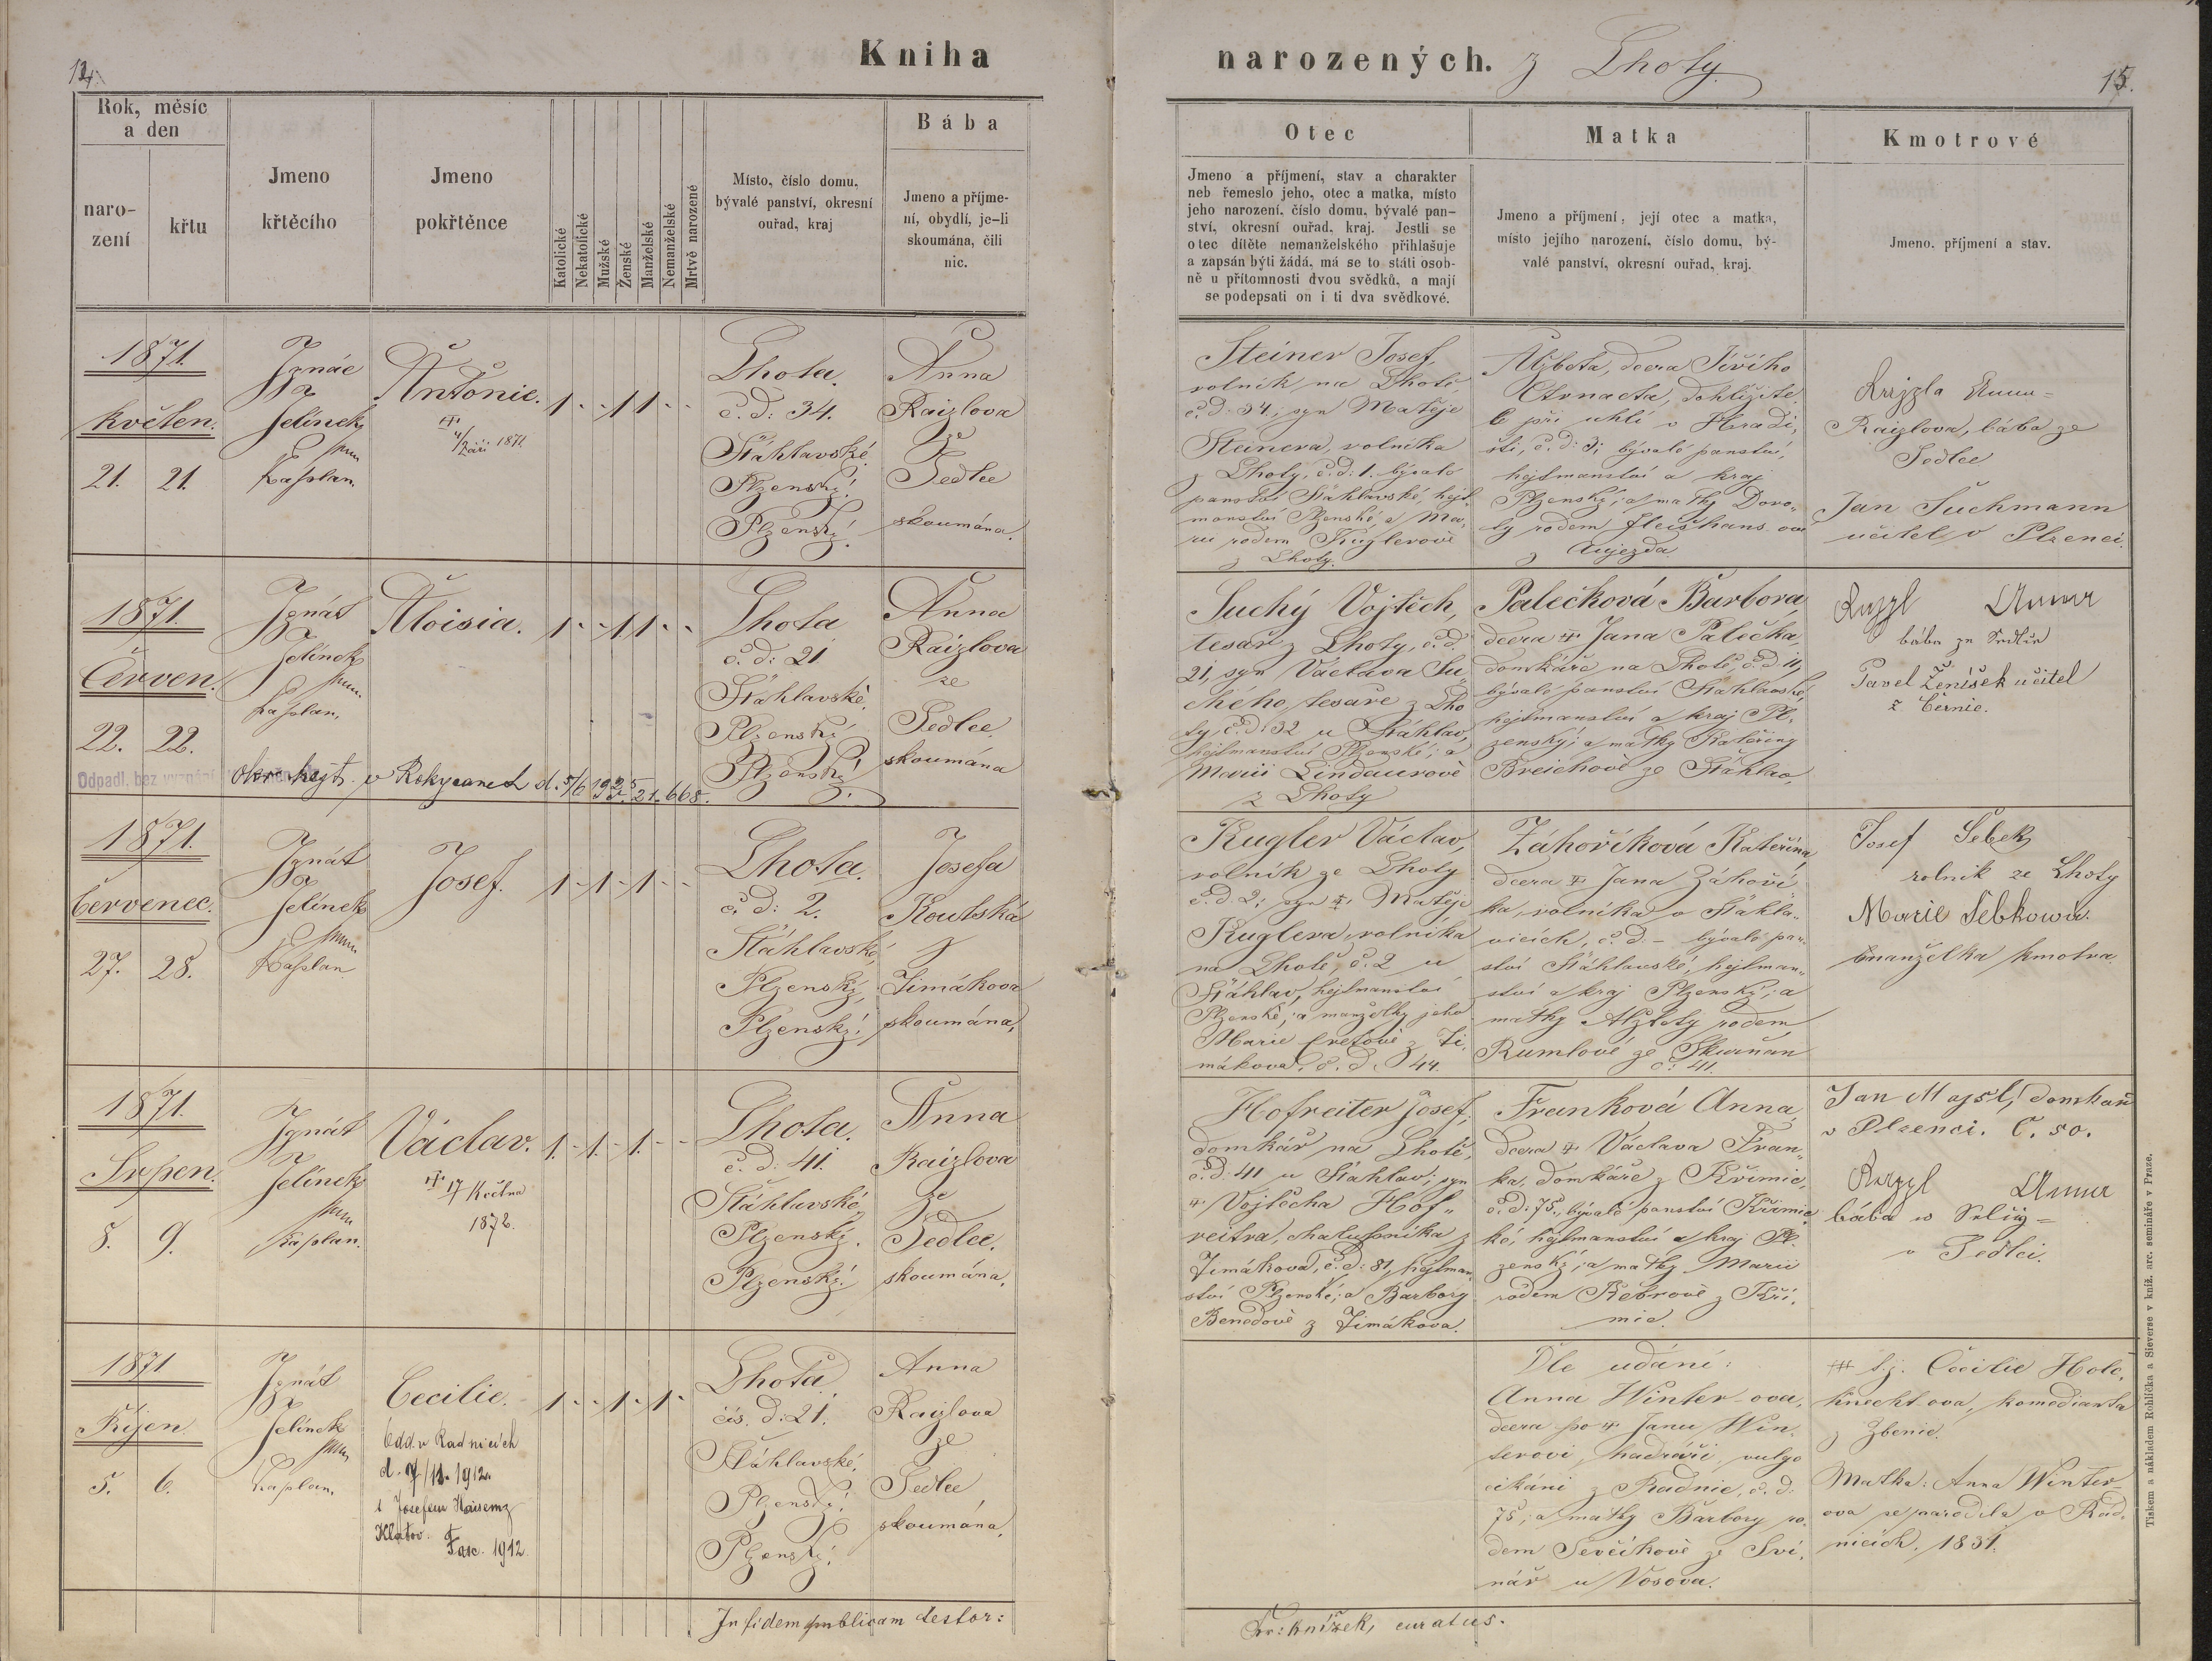 14.
Kniha
narozených. z Lhoty
15.
Rok, měsíc
a den
naro-
zení
křtu
Jmeno
křtěcího
Jmeno
pokřtěnce
Katolické
Nekatolické
Mužské
Ženské
Manželské
Nemanželské
Mrtvě narozené
Místo, číslo domu,
bývalé panství, okresní
ouřad, kraj
Bába
Jmeno a příjme-
ní, obydlí, je-li
skoumána, čili
nic.
Otec
Jmeno a příjmení, stav a charakter
neb řemeslo jeho, otec a matka, místo
jeho narození, číslo domu, bývalé pan-
ství, okresní ouřad, kraj. Jestli se
otec dítěte nemanželského přihlašuje
a zapsán býti žádá, má se to státi osob-
ně u přítomnosti dvou svědků, a mají
se podepsati on i ti dva svědkové.
Matka
Jmeno a příjmení, její otec a matka,
místo jejího narození, číslo domu, bý-
valé panství, okresní ouřad, kraj.
Kmotrové
Jmeno, příjmení a stav.
1871.
květen.
21. 21.
Ignác
Jelínek
kaplan.
Antonie.
4/Září 1871
1 - - 1 1 - -
Lhota.
č. d: 34.
Šťáhlavské.
Plzenský.
Plzenský.
Anna
Raizlova
ze
Sedlce
skoumána.
Steiner Josef,
rolník na Lhotě,
č. d: 34; syn Matěje
Steinera, rolníka
z Lhoty, č. d: 1. bývalé
panství Šťáhlavské, hejt-
manství Plzenské, a Ma-
rie rodem Kuglerově
z Lhoty.
Alžbeta, dcera Jiřího
Čtrnacta, dohlížite-
le při uhlí v Hradi-
šti, č. d: 3; bývalé panství,
hejtmanství a kraj
Plzenský; a matky Doro-
ty rodem Fleišhans ové
z Aujezda
Anna
Raizlova, bába ze
Sedlce
Jan Suchmann
učitel v Plzenci.
1871.
Červen.
22. 22.
Ignát
Jelínek
kaplan.
Aloisia.
1 - - 1 1 - -
Lhota
č. d: 21
Šťáhlavské.
Plzenský
Plzenský.
Anna
Raizlova
ze
Sedlce
skoumána
Odpadl. bez vyznání
okr. hejt. v Rokycanech d. 5/6 1925 21.668.
Suchý Vojtěch,
tesař z Lhoty, č. d.
21, syn Václava Su-
chého, tesaře z Lho
ty, č. d: 32 u Šťáhlav,
hejtmanství Plzenské; a
Marii Lindaurově
z Lhoty
Palečková Barbora
dcera Jana Palečka,
domkáře na Lhotě, č. d. 11,
bývalé panství Šťahlavské,
hejtmanství a kraj Pl-
zenský; a matky Kateřiny
Breichové ze Šťáhlav.
Anna
bába ze Sedlce
Pavel Ženíšek učitel
z Černic.
1871.
Červenec.
27. 28.
Ignát
Jelínek
kaplan
Josef.
1 - 1 - 1 - -
Lhota.
č. d: 2.
Šťáhlavské,
Plzenský,
Plzenský.
Josefa
Koutská
z
Timákova
skoumána,
Kugler Václav,
rolník ze Lhoty
č. d. 2; syn Matěje
Kuglera, rolníka
na Lhotě, č. 2 u
Šťáhlav, hejtmanství
Plzenské, a manželky jeho
Marie Cretové z Ti-
mákova, č. d. 44.
Záhoříková Kateřina
dcera Jana Záhoří-
ka, rolníka v Šťáhla-
vicích, č. d. - bývalé pan-
ství Šťáhlavské, hejtman-
ství a kraj Plzenský; a
matky Alžběty rodem
Rumlové ze Skurňan
č. 41.
Josef Šebek
rolník ze Lhoty
Marie Šebkowa.
manželka kmotra.
1871.
Srpen.
8. 9.
Ignát
Jelínek
kaplan.
Václav.
17/Května
1872.
1. - 1. - 1. - -
Lhota.
č. d: 41.
Šťáhlavské
Plzenský.
Plzenský.
Anna
Raizlova
ze
Sedlce.
skoumána,
Hofreiter Josef,
domkář na Lhotě,
č. d: 41 u Šťáhlav; syn
Vojtěcha Hof-
reitra, chalupníka z
Timákova, č. d: 81, hejtman-
ství Plzenské; a Barbory
Benedově z Timákova.
Franková Anna,
dcera Václava Fran-
ka, domkáře z Křimic,
č. d. 75, bývalé panství Křimic
ké, hejtmanství a kraj Pl-
zenský; a matky Marii
rodem Rebrově z Kři-
mic.
Jan Majsl, domkař
v Plzenci. č. 50.
Anna
bába
v Sedlci.
1871
Říjen.
5. 6.
Ignát
Jelínek
kaplan.
Cecilie.
Odd. v Radnicích
d. 7/11. 1912.
s Josefem
Klatov.
Fasc. 1912.
1 - - 1 - 1 -
Lhota
čís. d: 21.
Šťáhlavské,
Plzenský,
Plzenský.
Anna
Raizlova
ze
Sedlce
skoumána,
Dle udání:
Anna Winter ova,
dcera po Janu Win-
terovi, hadráři, vulgo
cikáni z Radnic, č. d:
75; a matky Barbory ro-
dem Ševčíkově ze Svi-
nář u Vosova.
t. j. Cecilie Hole-
knecht ova, komedianta
z Zbenic.
Matka: Anna Winter-
ova se narodila v Rad-
nicích, 1831.
In fidem publicam testor:
Fr: Knížek, curatus.
Tiskem a nákladem Rohlíčka a Sieverse v kníž. arc. semináře v Praze.